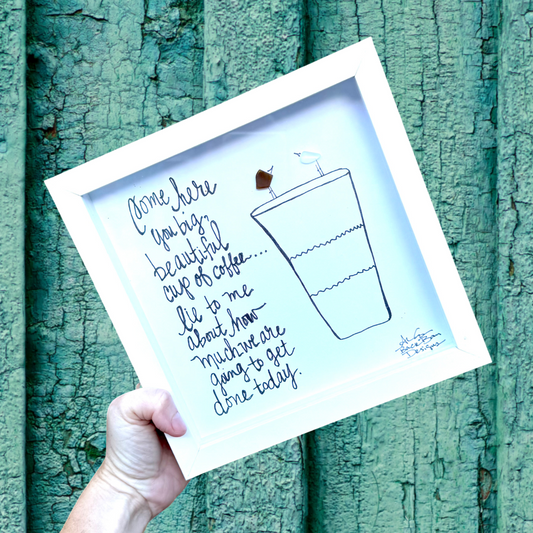 Come here
you big,
beautiful
cup of coffee...
lie to me
about how
much we are
going to get
done today.
Designs